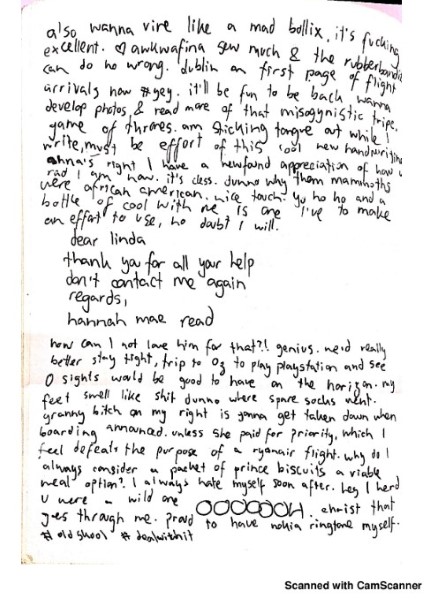 also wanna vire like a mad bollix, it's fucking
excellent. ♡ awkwafina sew much & the rubberbandits
can do no wrong. dublin on first page of flight
arrivals now #gey. it'll be fun to be back wanna
develop photos, & read more of that misogynistic tripe.
game of thrones. am sticking tongue out while I
write, must be effort of this cool new handwriting
anna's right I have a newfound appreciation of how
rad I am now. it's class. dunno why them mammoths
were african american. nice touch. yo ho ho and a
bottle of cool with me is one I've to make
an effort to use, no doubt I will.
dear linda
thank you for all your help
don't contact me again
regards,
hannah mae read
how can I not love him for that?! genius. we'd really
better stay tight, trip to Oz to play playstation and see
0 sights would be good to have on the horizon. my
feet smell like shit dunno where spare socks went.
granny bitch on my right is gonna get taken down when
boarding announced. unless she paid for priority, which I
feel defeats the purpose of a ryanair flight. why do I
always consider a packet of prince biscuits a viable
meal option? I always hate myself soon after. hey I herd
u were a wild one OOOOOOH. christ that
goes through me. proud to have nokia ringtone myself.
#oldskool #dealwithit
Scanned with CamScanner